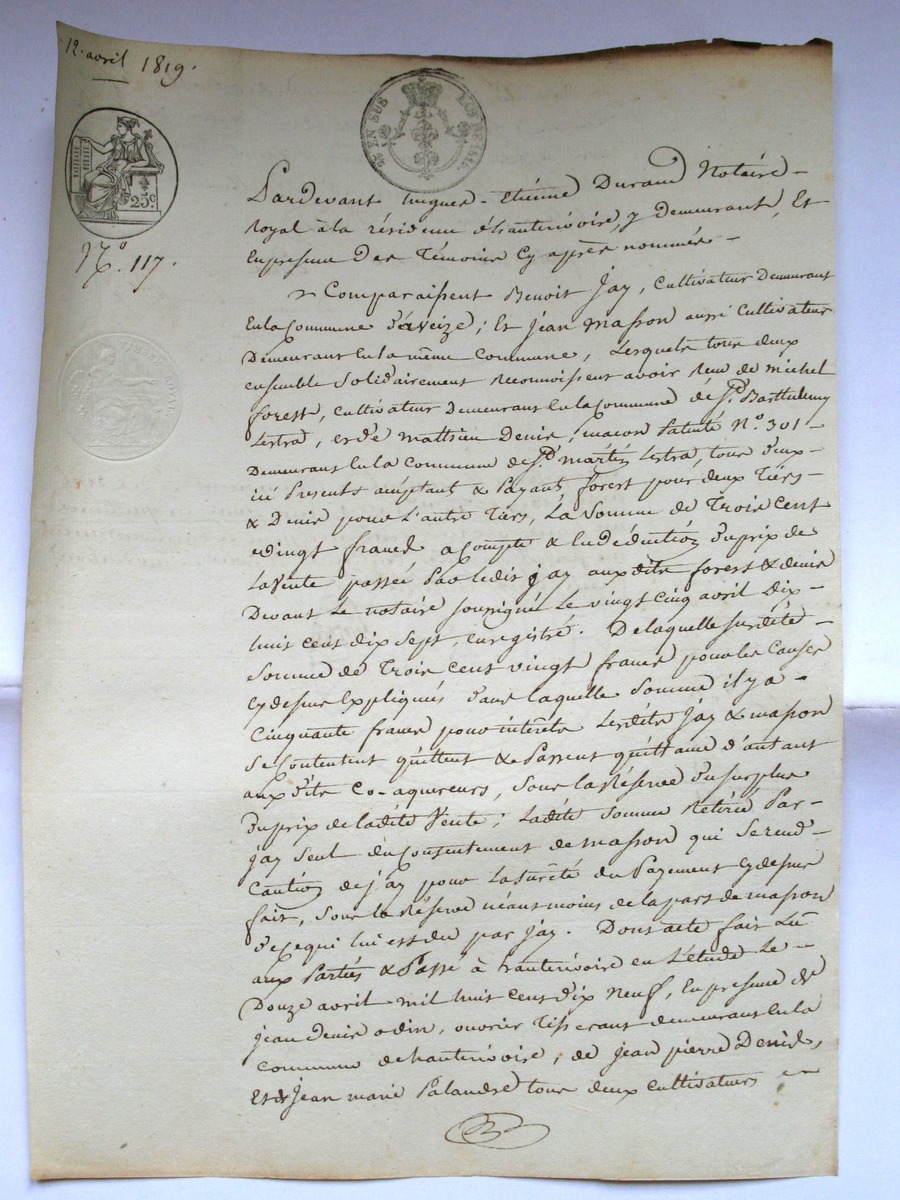 12. avril 1819.
25c
EN SUS
N.o 117.
Pardevant hugues-Etienne Durand Notaire
royal à la résidence d'hauterivoire, y Demeurant, Et
En presence Des Témoins Cy après nommés
Comparaissent Benoit Jay, Cultivateur Demeurant
En la Commune d'aveize; Et Jean Masson aussi Cultivateur
Demeurant En la même Commune, Lesquels tous deux
ensemble Solidairement Reconnoissent avoir Reçu de michel
forest, Cultivateur Demeurant En la Commune de St. Barthelemy
Lestra, et de mathieu Denis, maçon Patenté N.o 301
Demeurant En la Commune de St. martin Lestra, tous deux
ici Presents acceptant & Payant forest pour deux Tiers
& Denis pour L'autre Tiers, La Somme de Trois Cent
vingt francs a Compte & En déduction Du prix de
La Vente passée Par Ledit jay aux dits forest & denis
Devant Le notaire soussigné Le vingt cinq avril Dix
huit cent dix Sept, enregistré. De laquelle susdite
Somme de Trois Cent vingt francs pour les Causes
Cy dessus Expliqués dans laquelle Somme il y a
Cinquante francs pour intérêts Lesdits Jay & masson
Se Contentent quittent & Passent quittance d'autant
aux dits Co-aquereurs, Sous la Réserve Du surplus
Du prix de ladite Vente; Ladite Somme Retirée Par
jay Seul du Consentement de masson qui Se rend
Caution de jay pour La sureté du Payement Cy dessus
fait, Sous la Réserve néansmoins de la part de masson
de Ce qui lui est du par Jay. Dont acte fait Lu
aux Parties & Passé à hauterivoire en L'étude Le
Douze avril mil huit cent dix Neuf, En presence de
jean Denis odin, ouvrier Tisserant demeurant En la
Commune de hauterivoire, de jean pierre Denis,
Et de Jean marie Palandre tous deux cultivateurs